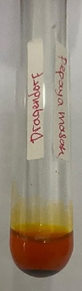 Dragendorf
Pepaya masak